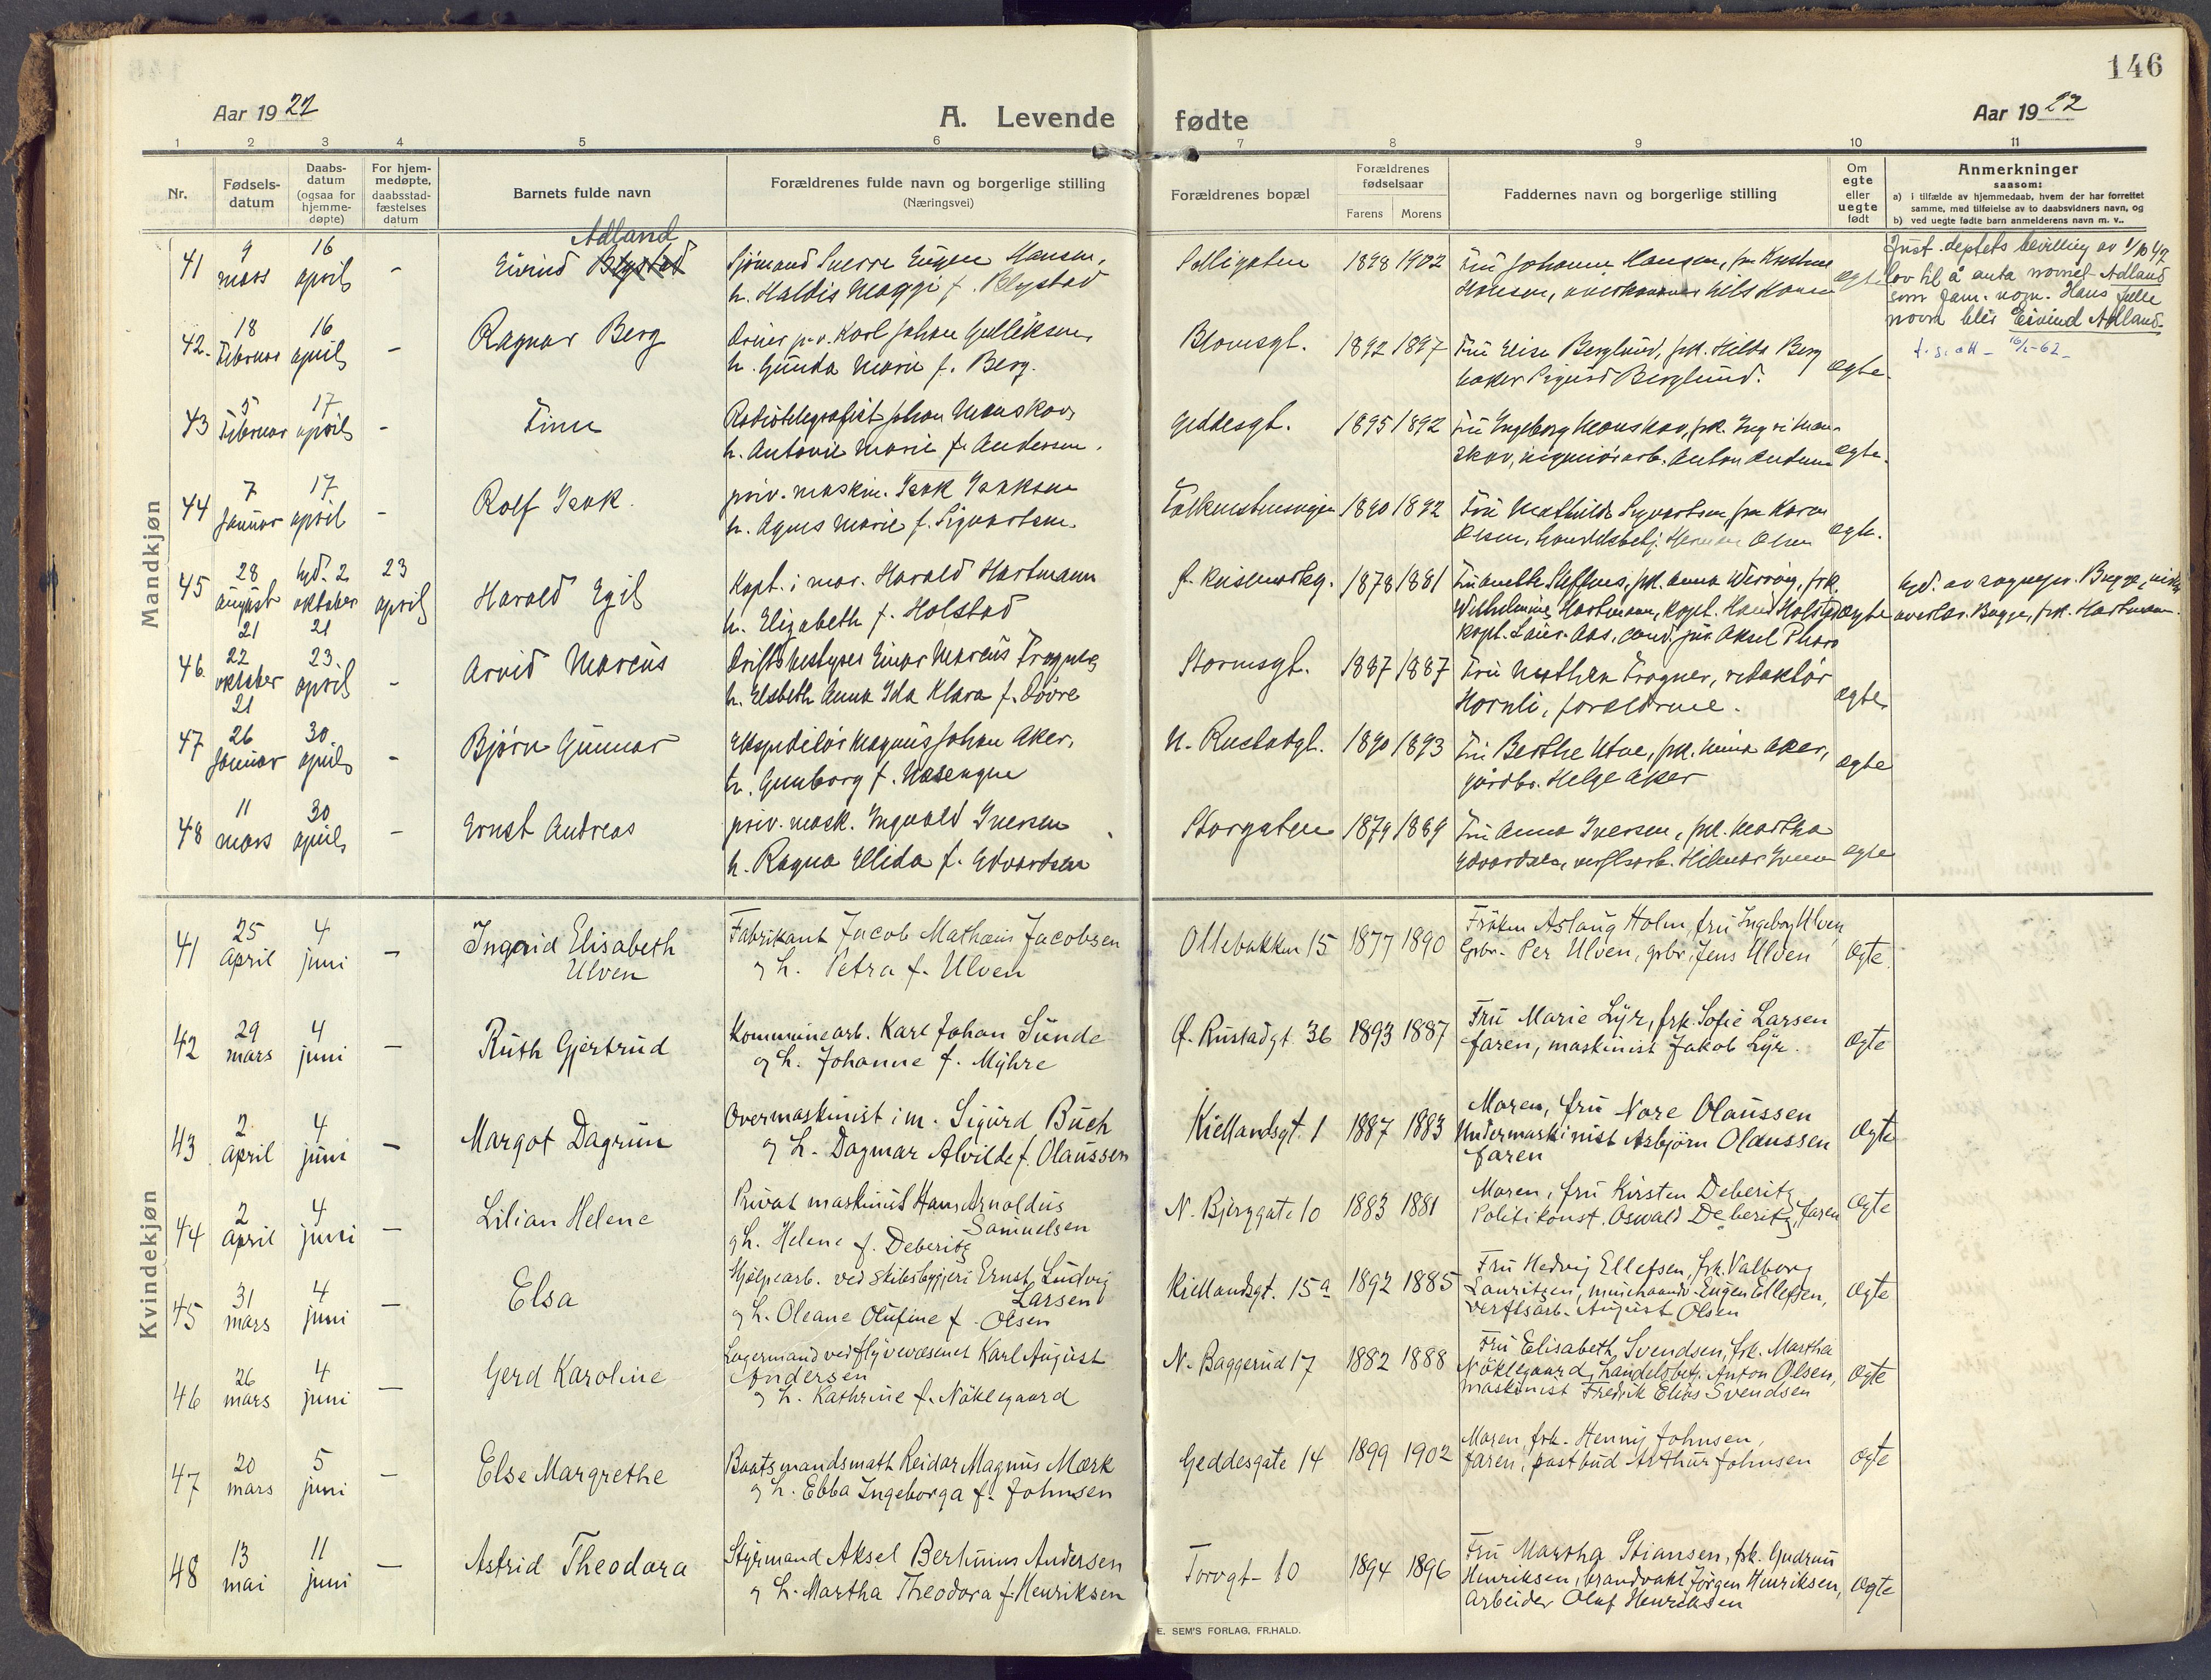 146
Aar 1922
A. Levende fødte
Aar 1922
1 2 3 4 5 6 7 8 9 10 11
Nr.
Fødsels-
datum
Daabs-
datum
(ogsaa for
hjemme-
døpte)
For hjem-
medøpte,
daabsstad-
fæstelses
datum
Barnets fulde navn
Forældrenes fulde navn og borgerlige stilling
(Næringsvei)
Forældrenes bopæl
Forældrenes
fødselsaar
Farens Morens
Faddernes navn og borgerlige stilling
Om
egte
eller
uegte
født
Anmerkninger
saasom:
a) i tilfælde av hjemmedaab, hvem der har forrettet
samme, med tilføielse av to daabsvidners navn, og
b) ved uegte fødte barn anmelderens navn m. v..
Mandkjøn
41
9
mars
16
april
-
Adland
Eivind Blystad
Sjömand Sverre Eugen Hansen,
h. Haldis Maggi f. Blystad
Solligaten
1898 1902
Fru Johanne Hansen,
egte
Just. deptets bevilling av
lov til å anta navnet Adland
som fam. navn. Hans fulle
navn blir Eivind Adland.
42.
18
Februar
16
april
-
Ragnar Berg
Karl Johan Gulliksen,
h. Gunda Marie f. Berg.
Blomsgt.
1892 1897
Fru Elise Berglund, frk. Hilda Berg
baker Sigurd Berglund.
egte.
43
5
Februar
17
april
-
Finn
Radiotelegrafist Johan Manskow,
h. Antonie Marie f. Andersen.
Geddesgt.
1895 1892
Fru Ingeborg Manskow, frk.
egte.
44
7
Januar
17
april
-
Rolf Isak.
priv. maskin. Isak Isaksen
h. Agnes Marie f. Sigvartsen.
Falkenstensveien
1890 1892
Fru Mathilde Sigvartsen, fru Karen
Olsen, handelsbetj. Herman Olsen
egte.
45
28
august
21
hjd. 2
oktober
21
23
april
Harald Egil
Kapt. i mar. Harald Hartmann
h. Elizabeth f. Holstad
1878 1881
Wilhelmine Hartmann, kapt. Hans Holstad
kapt. Laur. Aas, cand. jur. Aksel
egte
hjd. av sogneprest Bugge,
overlær. Bugge, frk. Hartmann.
46.
22
oktober
21
23
april
-
Arvid Marcus
Driftsbestyrer Einar Marcus Trogner,
h. Elsbeth Anna Ida Klara f. Dövre
Stormsgt.
1887 1887
Fru Trogner, redaktør
Hornli, forældrene.
egte
47
26
Januar
30
april
-
Bjørn Gunnar
Ekspeditør Magnus Johan Aker,
h. Gunborg f. Hasengen
N. Rustadgt.
1890 1893
Fru Berthe Utne, frk. Anna Aker,
gårdbr. Helge Aker
egte
48
11
mars
30
april
-
Ernst Andreas
priv. mask. Ingvald Iversen
h. Ragna Elida f. Edvardsen
Storgaten
1879 1889
Fru Anna Iversen, frk. Martha
Edvardsen, verftsarb. Hilmar Iversen
egte
Kvindekjøn
41
25
april
4
juni
-
Ingrid Elisabeth
Ulven
Fabrikant Jacob Mathæus Jacobsen
og h. Petra f. Ulven
Ollebakken 15
1877 1890
Frøken Aslaug Holm, fru Ingeborg Ulven,
Gbr. Per Ulven, gbr. Jens Ulven
egte
42
29
mars
4
juni
-
Ruth Gjertrud
Kommunearb. Karl Johan Sunde
og h. Johanne f. Myhre
Ø. Rustadgt 36
1893 1887
Fru Marie Lyr, frk. Sofie Larsen
faren, maskinist Jakob Lyr.
egte
43
2
april
4
juni
-
Margot Dagrun
Overmaskinist i m. Sigurd Buch
og h. Dagmar Alvilde f. Olaussen
Kiellandsgt. 1
1887 1883
Moren, fru Nare Olaussen
Undermaskinist Asbjørn Olaussen
faren
egte
44
2
april
4
juni
-
Lilian Helene
Privat maskinist Hans Arnoldus
Samuelsen
og h. Helene f. Deberitz
N. Bjerggate 10
1883 1881
Moren, fru Kirsten Deberitz
Politikonst. Oswald Deberitz, faren
egte
45
31
mars
4
juni
-
Elsa
Hjælpearb. ved skibsbyggeri Ernst Ludvig
Larsen
og h. Oleane Olufine f. Olsen
Kiellandsgt. 15a
1892 1885
Fru Hedvig Ellefsen, frk. Valborg
Lauritzen, minehaandv. Eugen Ellefsen,
verftsarb. August Olsen
egte
46
26
mars
4
juni
-
Gerd Karoline
Lagermand ved flyvevæsenet Karl August
Andersen
og h. Kathrine f. Nøklegaard
N. Baggerud 17
1882 1888
Fru Elisabeth Svendsen, frk. Martha
Nøklegaard, handelsbetj. Anton Olsen,
maskinist Fredrik Elias Svendsen
egte
47
20
mars
5
juni
-
Else Margrethe
Baatsmandsmath Reidar Magnus Mørk
og h. Ebba Ingeborga f. Johnsen
Geddesgate 14
1899 1902
Moren, frk. Henny Johnsen,
faren, postbud Arthur Johnsen
egte
48
13
mai
11
juni
-
Astrid Theodora
Styrmand Aksel Berhinius Andersen
og h. Martha Theodora f. Henriksen
Torvgt 10
1894 1896
Fru Martha Stiansen, frk. Gudrun
Henriksen, brandvakt Jørgen Henriksen,
Arbeider Oluf Henriksen
egte
E. SEM'S FORLAG, FR.HALD.